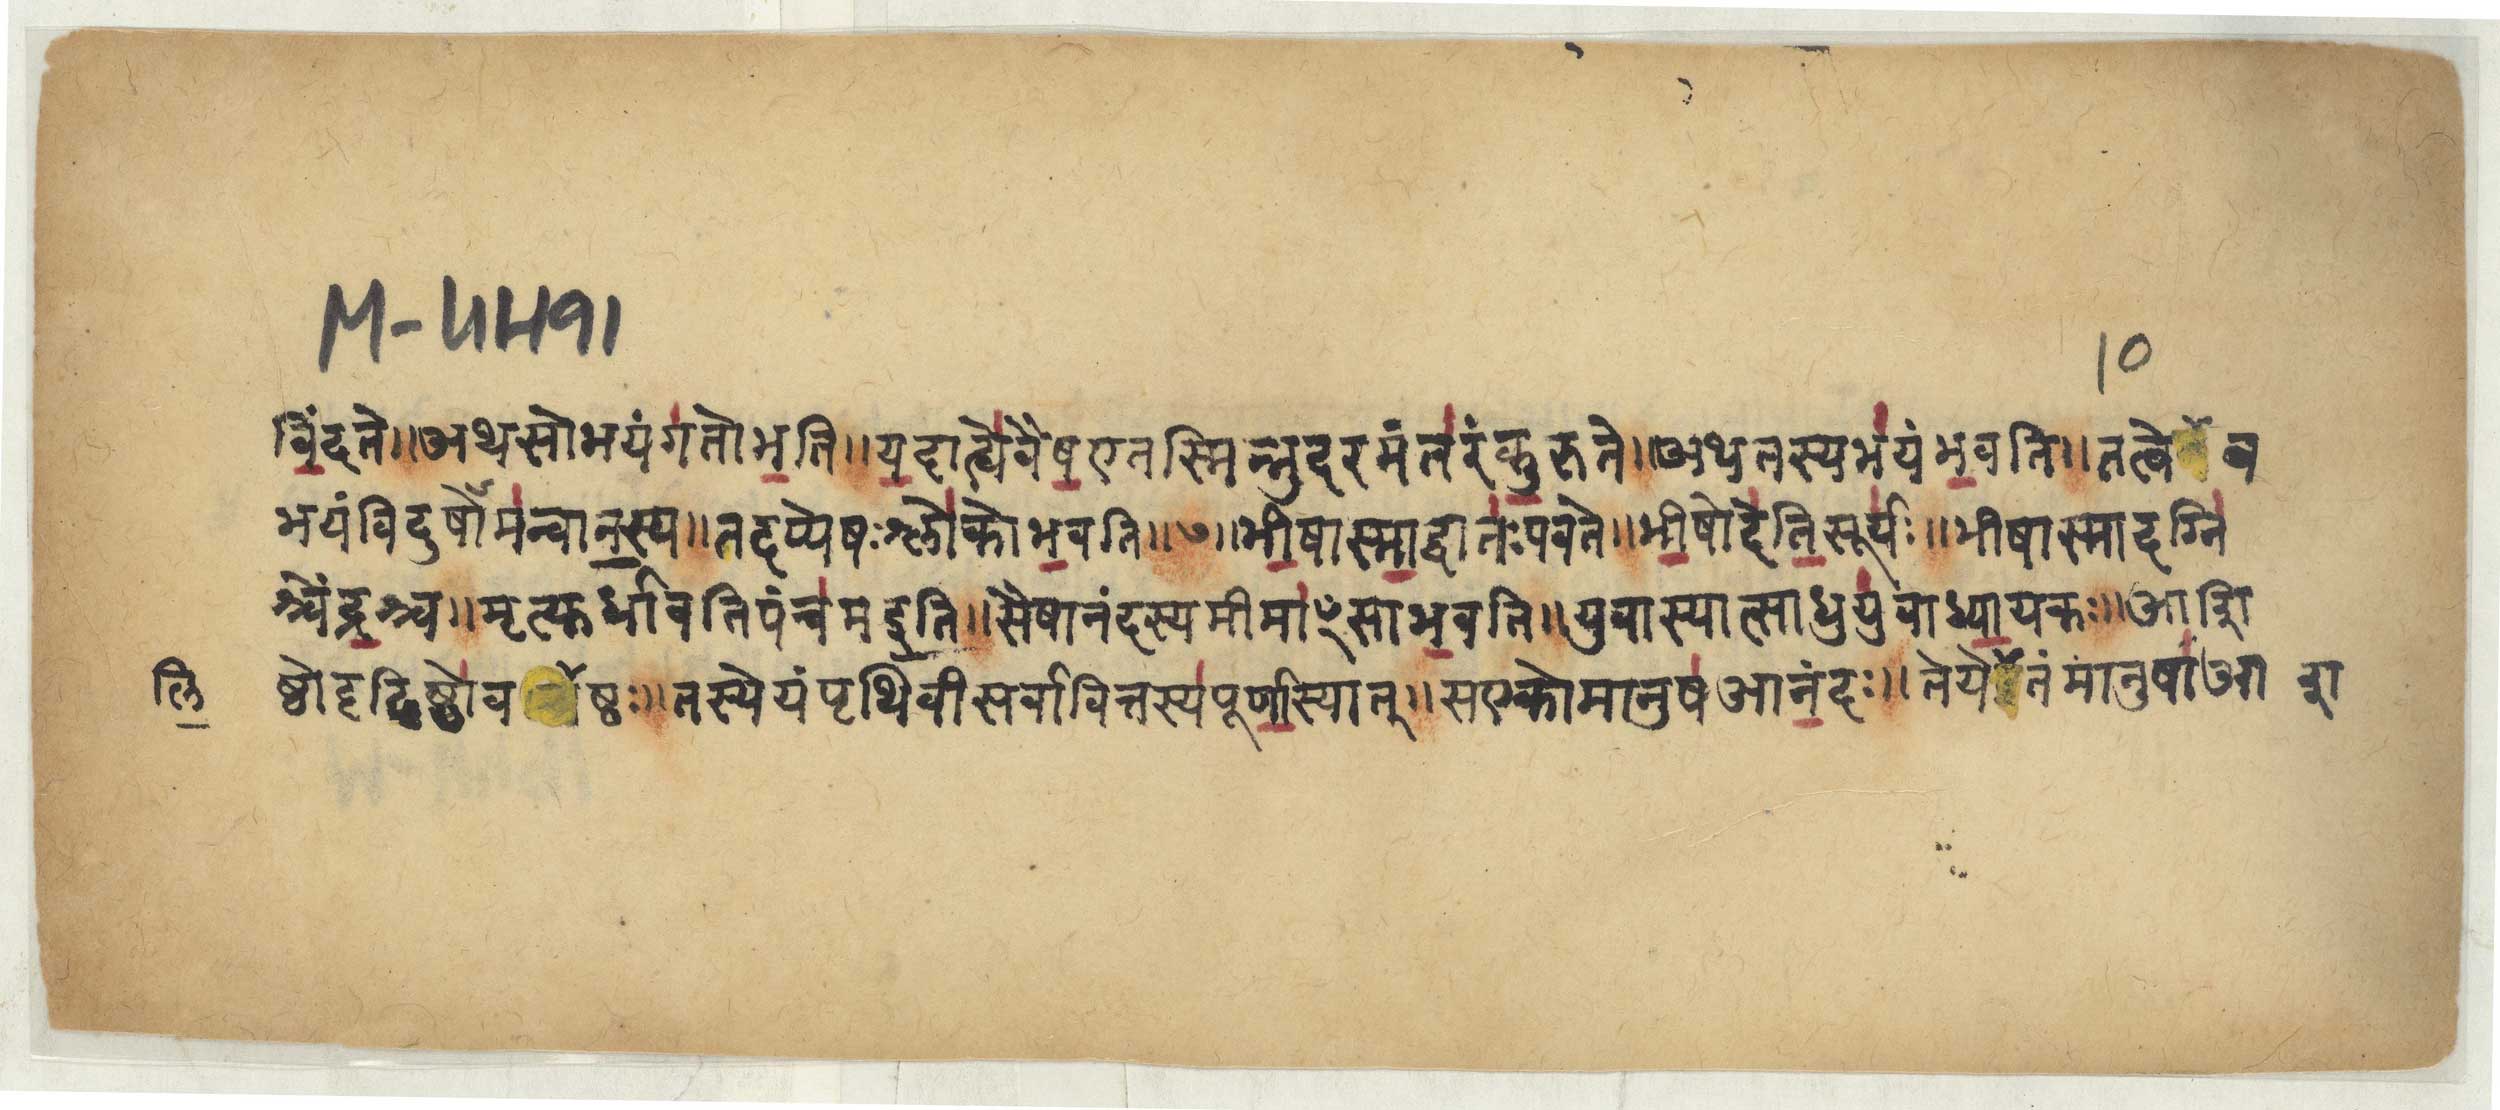 M-५५९१
10
विंदते॥अथसोभयंगतोभति॥यदात्ध्येवैषएतस्मिन्नुदरमंतरंकुरुते॥अथतस्यभयंभवति॥तत्वेव
भयंविदुषोमन्वानस्य॥तदप्येषःश्लोकोभवति॥७॥भीषास्माद्वातःपवते॥भीषोदेतिसूर्यः॥भीषास्मादग्नि
श्चेंद्रश्च॥मृत्युर्धावतिपंचमइति॥सैषानंदस्यमीमाꣳसाभवति॥युवास्यात्साधुयुवाध्यायकः॥आशि
ष्ठोदृढिष्ठोव ष्ठः॥तस्येयंपृथिवीसर्वावित्तस्यपूर्णास्यात्॥सएकोमानुषआनंदः॥तेये तंमानुषाआ शा
लि